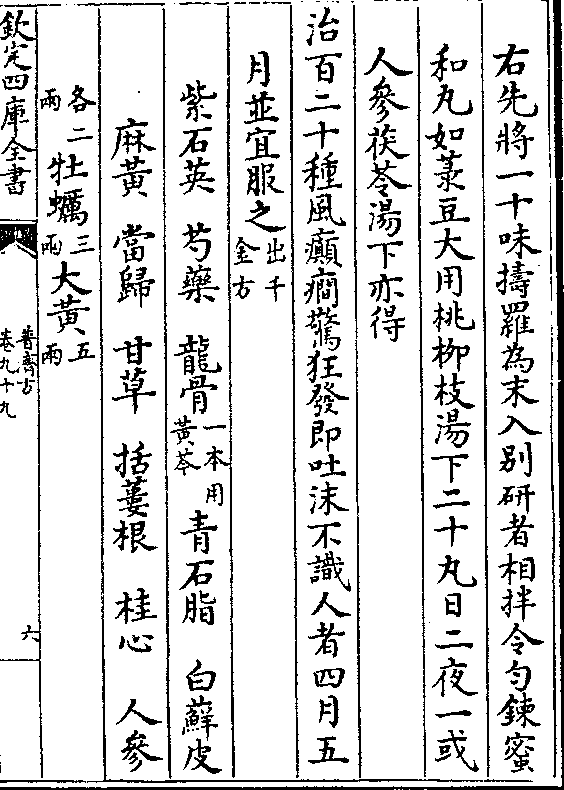 右先將一十味擣羅為末入别研者相拌令勻鍊蜜
和丸如菉豆大用桃柳枝湯下二十丸日二夜一或
人參茯苓湯下亦得
治百二十種風癲癇驚狂發即吐沫不識人者四月五
月並宜服之出千金方
紫石英 芍藥 龍骨一本用黃芩 青石脂 白蘚皮
麻黃 當歸 甘草 括蔞根 桂心 人參
各二兩 牡蠣三兩 大黃五兩
欽定四庫全書
普濟方
卷九十九
六